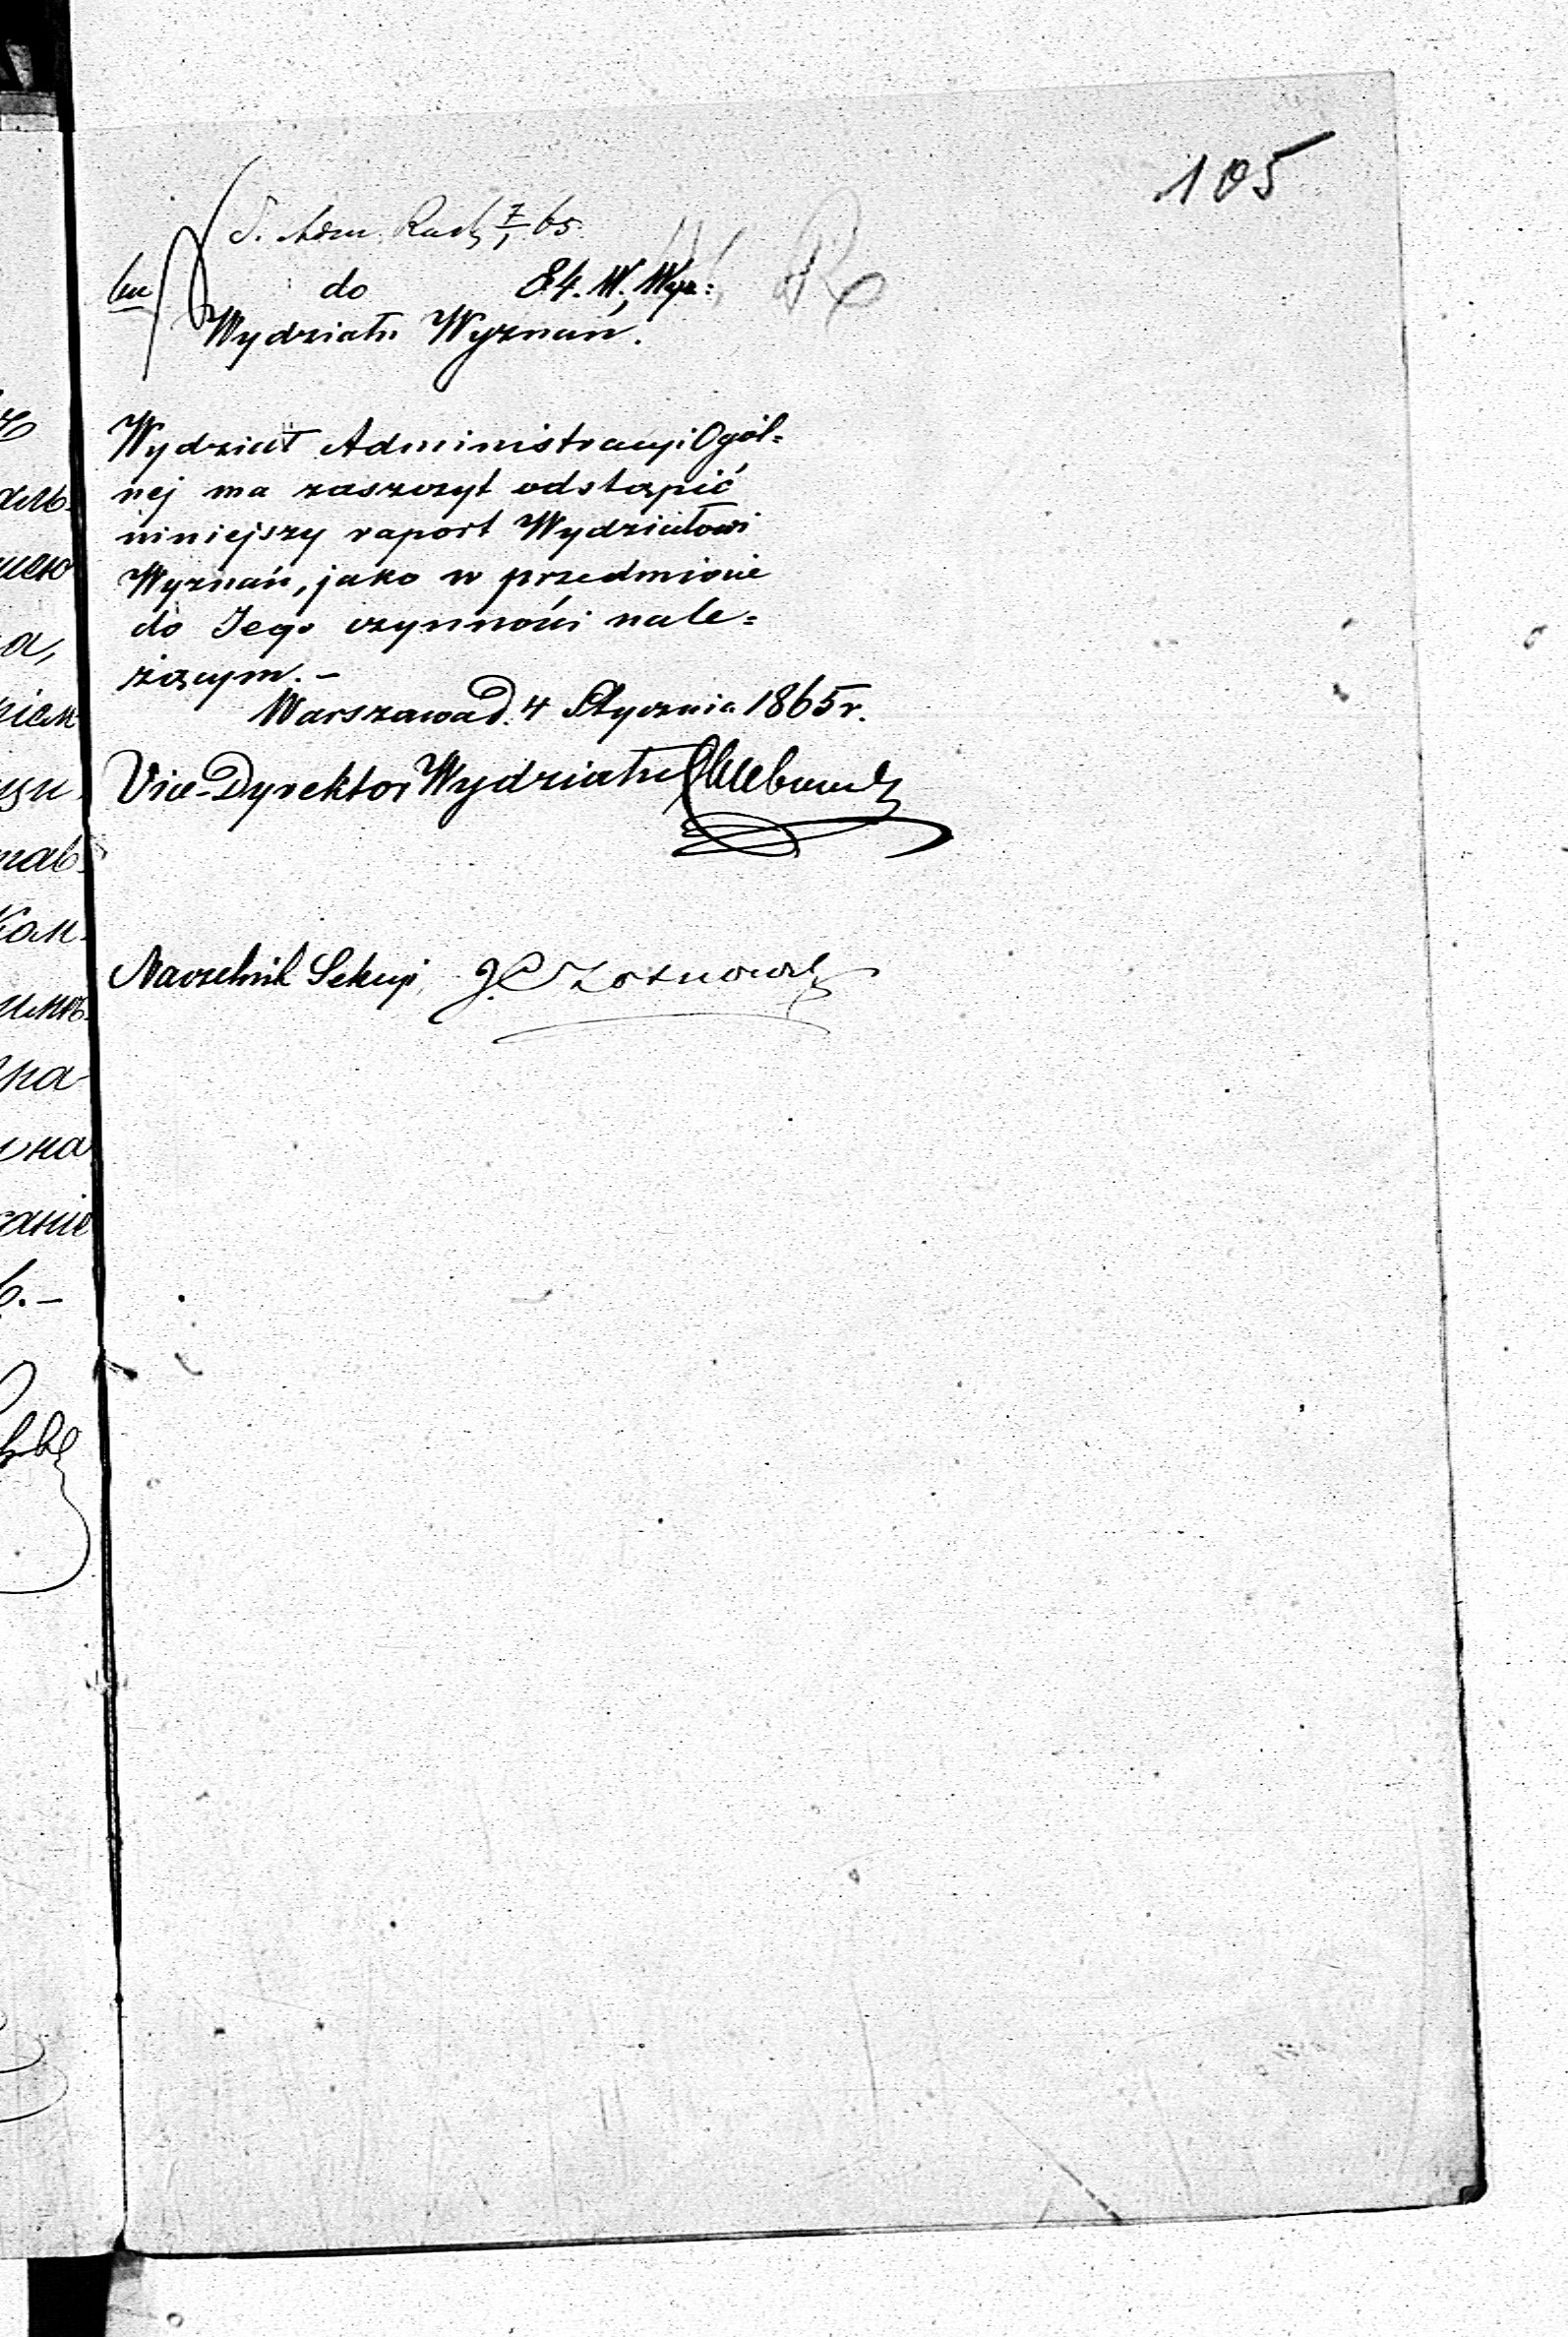 105
7/1 65.
do 84. W. Wyz:
Wydziału Wyznań.
Wydział Administracyi Ogól=
nej ma zaszczyt odstąpić
niniejszy raport Wydziałowi
Wyznań, jako w przedmiocie
do Jego czynności nale=
żącym. –
Warszawa d. 4 Stycznia 1865 r.
Vice-Dyrektor Wydziału
Naczelnik Sekcyi,